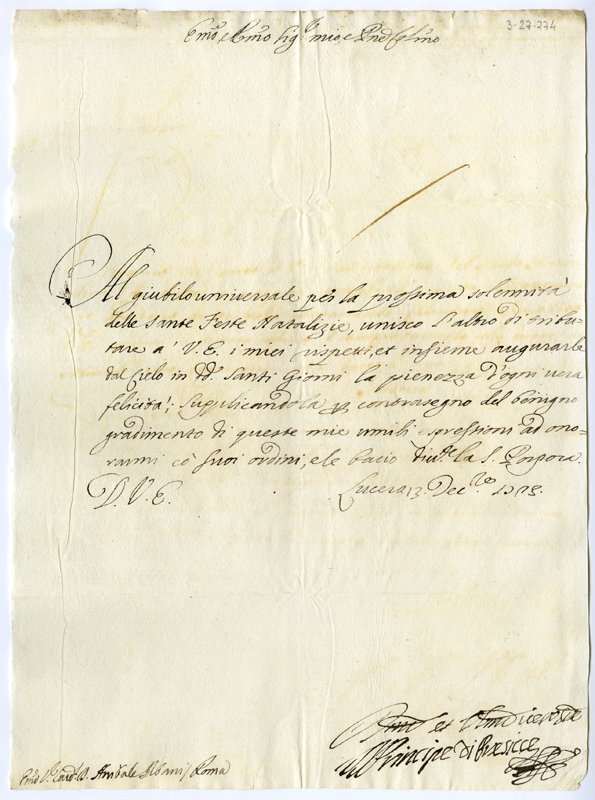 3-27-774
Emo, e Rmo Sig.r mio, e Pne Colmo
Al giubilo universale per la prossima solennità
delle Sante Feste Natalizie, unisco l'altro di tribu=
tare a' V. E. i miei rispetti, et insieme augurarle
dal Cielo in dd. Santi Giorni la pienezza d'ogni vera
felicità; Supplicandola per contrasegno del benigno
gradimento di queste mie umili espressioni ad ono=
rarmi co' suoi ordini, e le bacio la S. Porpora.
D. V. E. Lucera 13. Dec.
et
Il Principe di Presicce
Emo Sr Card. Annibale Albani / Roma